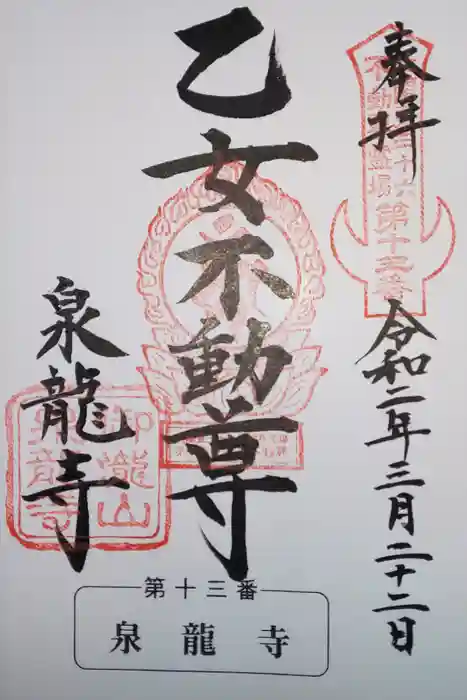 奉拝
不動霊場第十三番
令和二年三月二十二日
乙女不動尊
泉龍寺
御瀧山
泉龍寺
第十三番
泉龍寺